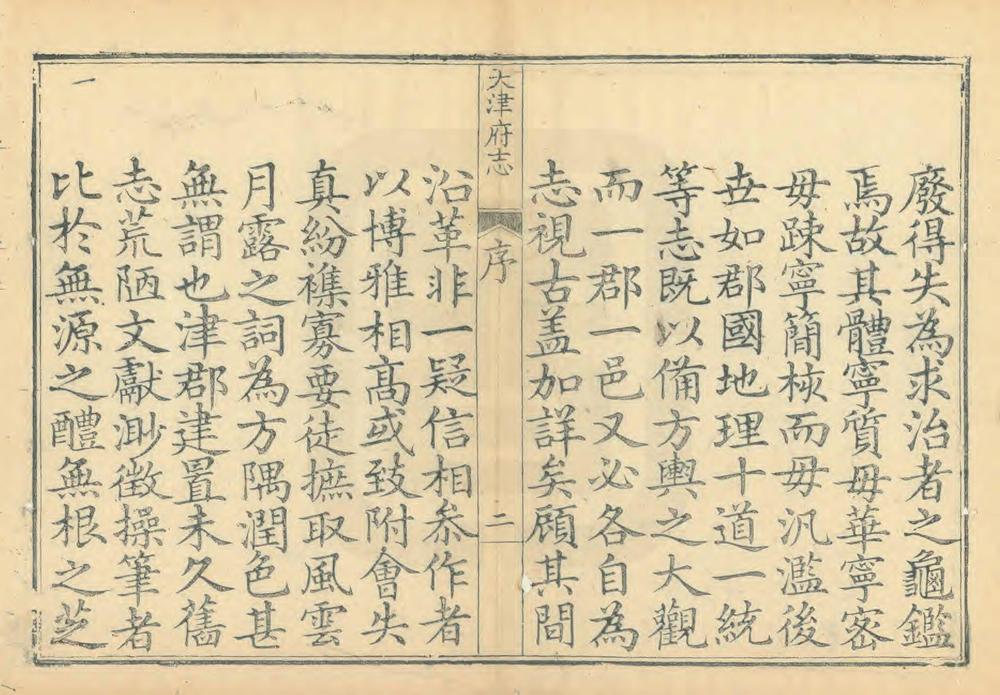 廢得失為求治者之龜鑑
焉故其體寧質毋華寧宻
毋踈寧簡核而毋汎濫後
丗如郡國地理十道一統
等志既以備方輿之大觀
而一郡一邑又必各自為
志視古盖加詳矣顧其間
天津府志
序
二
沿革非一疑信相叅作者
以博雅相高或致附會失
真紛襍寡要徒摭取風雲
月露之詞為方隅潤色甚
無謂也津郡建置未久舊
志荒陋文獻渺徵操筆者
比於無源之醴無根之芝